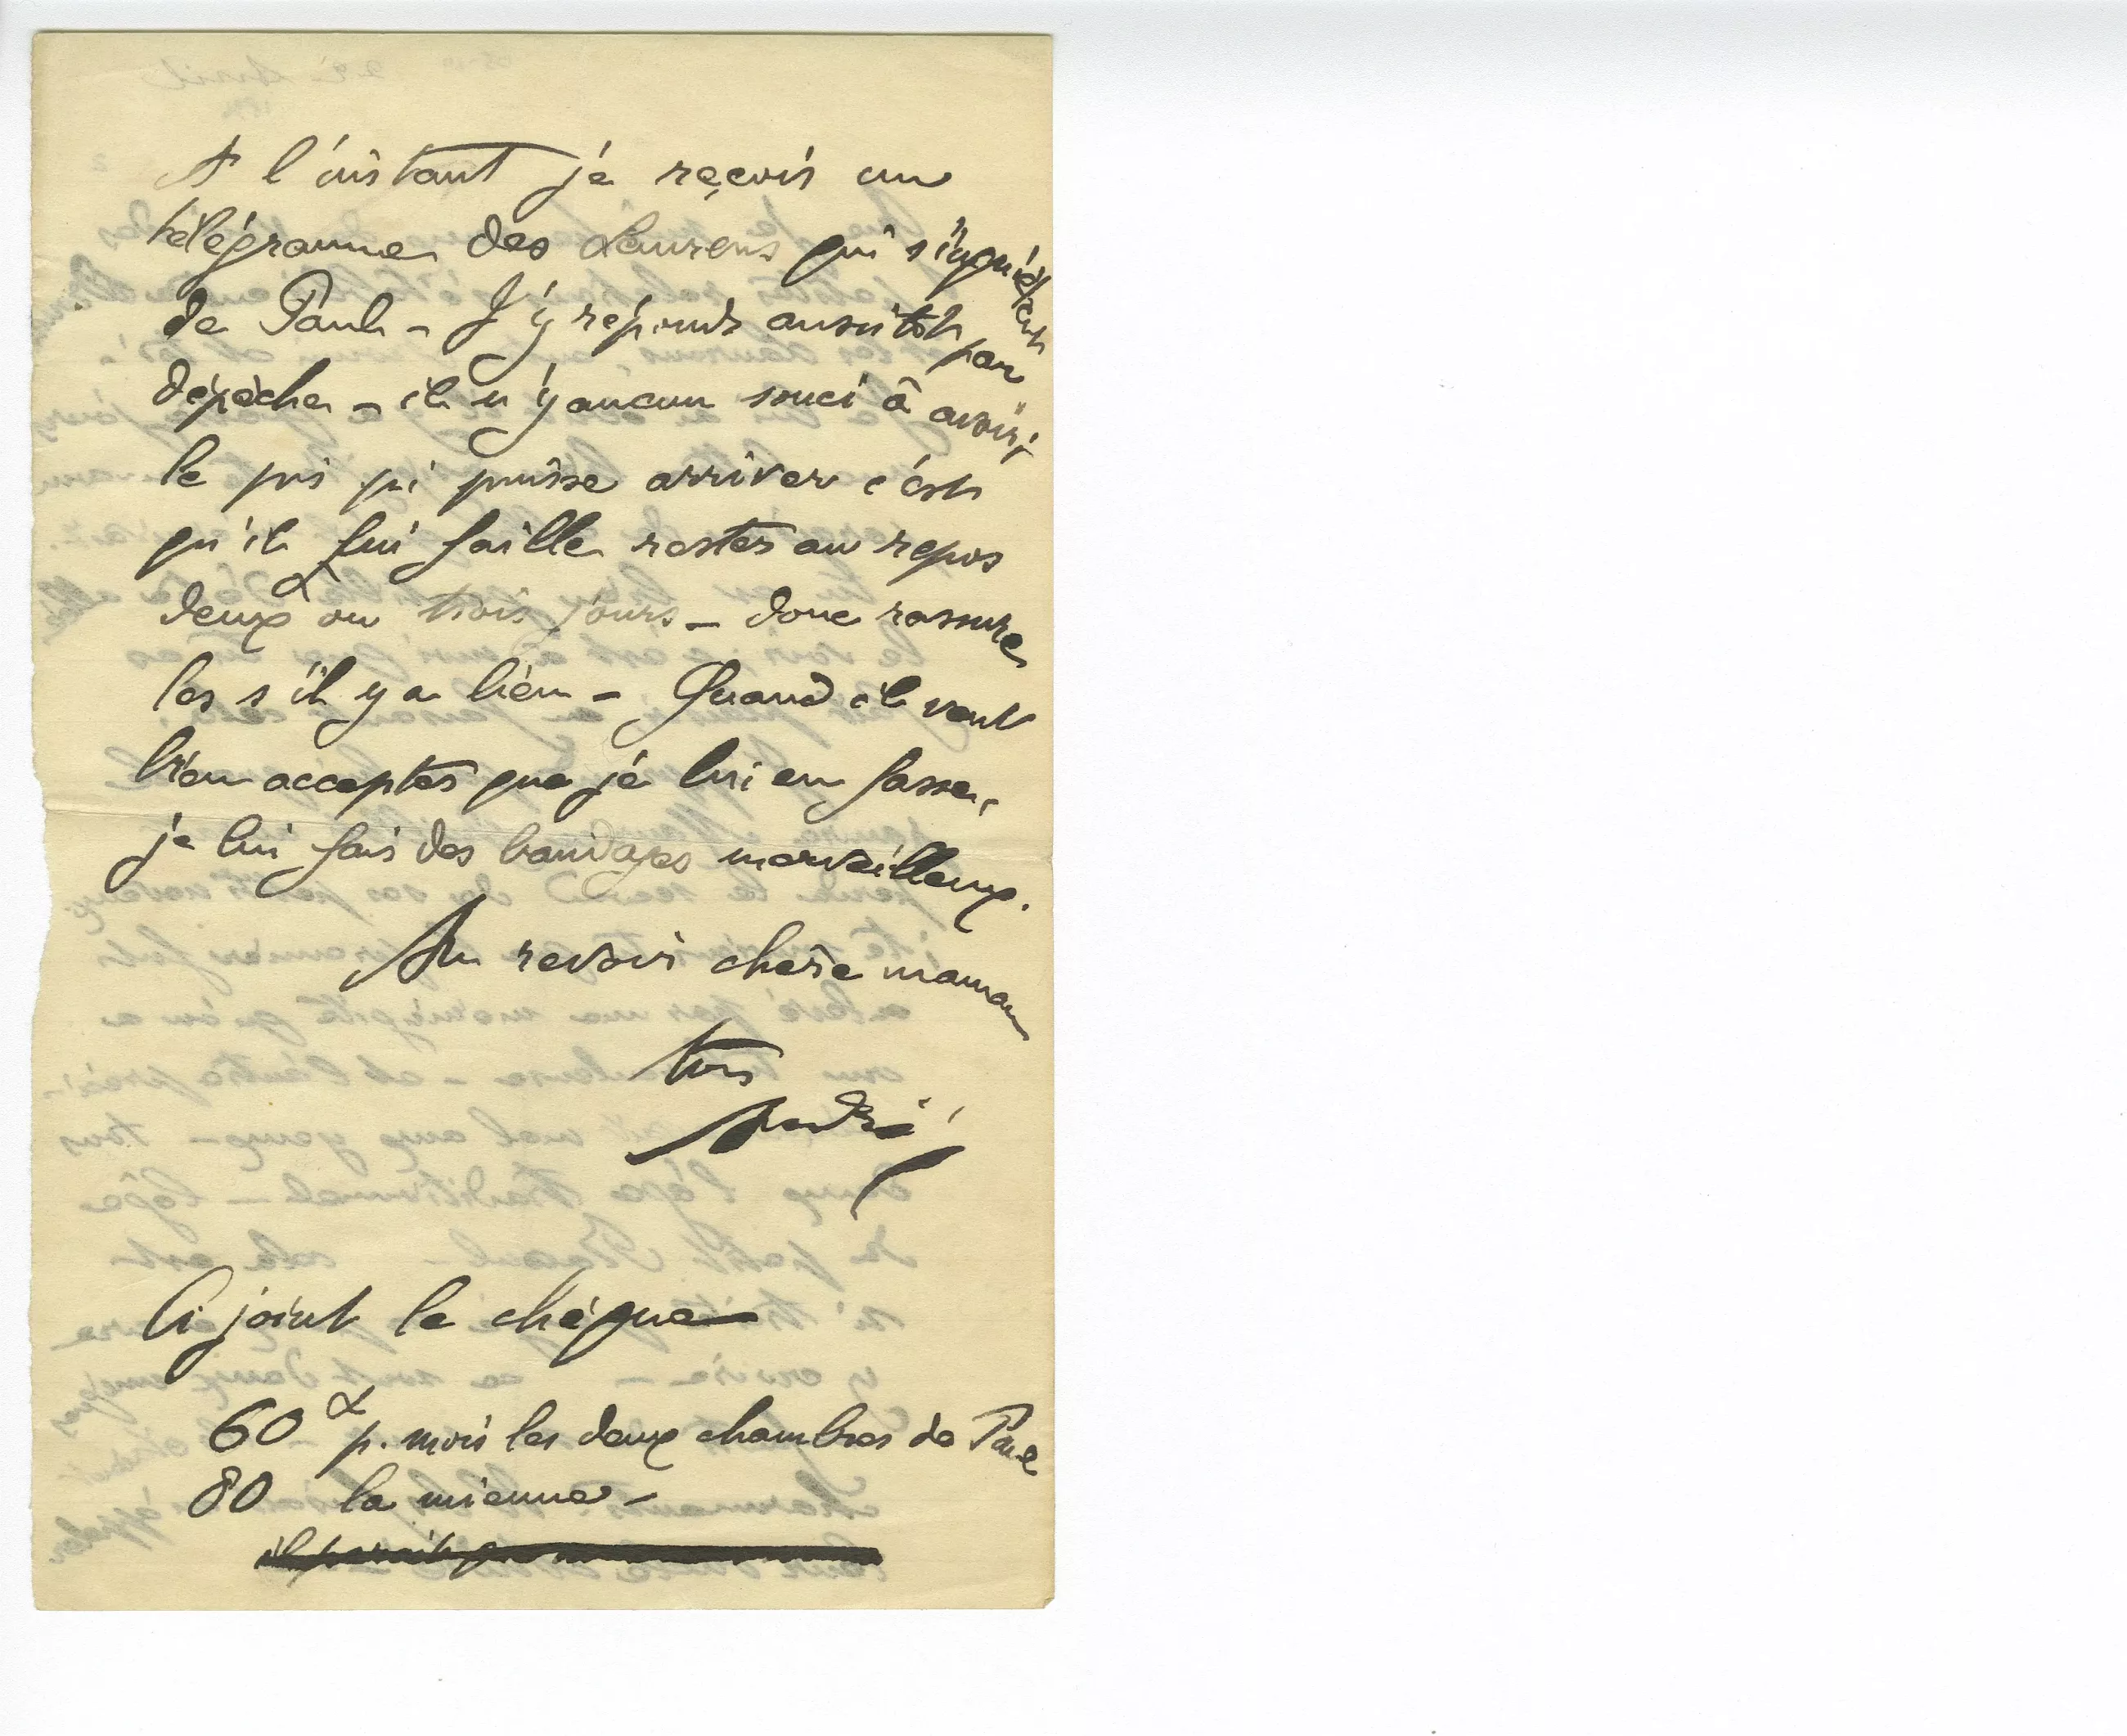 A l'instant je reçois un
télégramme des Laurens qui s'inquiètent
de Paul – J'y réponds aussitôt par
dépêche – il n'y aucun souci à avoir;
le pis qi puisse arriver c'est
qu'il lui faille rester au repos
deux ou trois jours – donc rassure
les s'il y a lieu – Quand il veut
bien accepter que je lui en fasse,
je lui fais des bandages merveilleux.
Au revoir chère maman
ton
André
Ci joint le chèque
60 p. mois les deux chambres de Paul
80 la mienne –
il paraît que